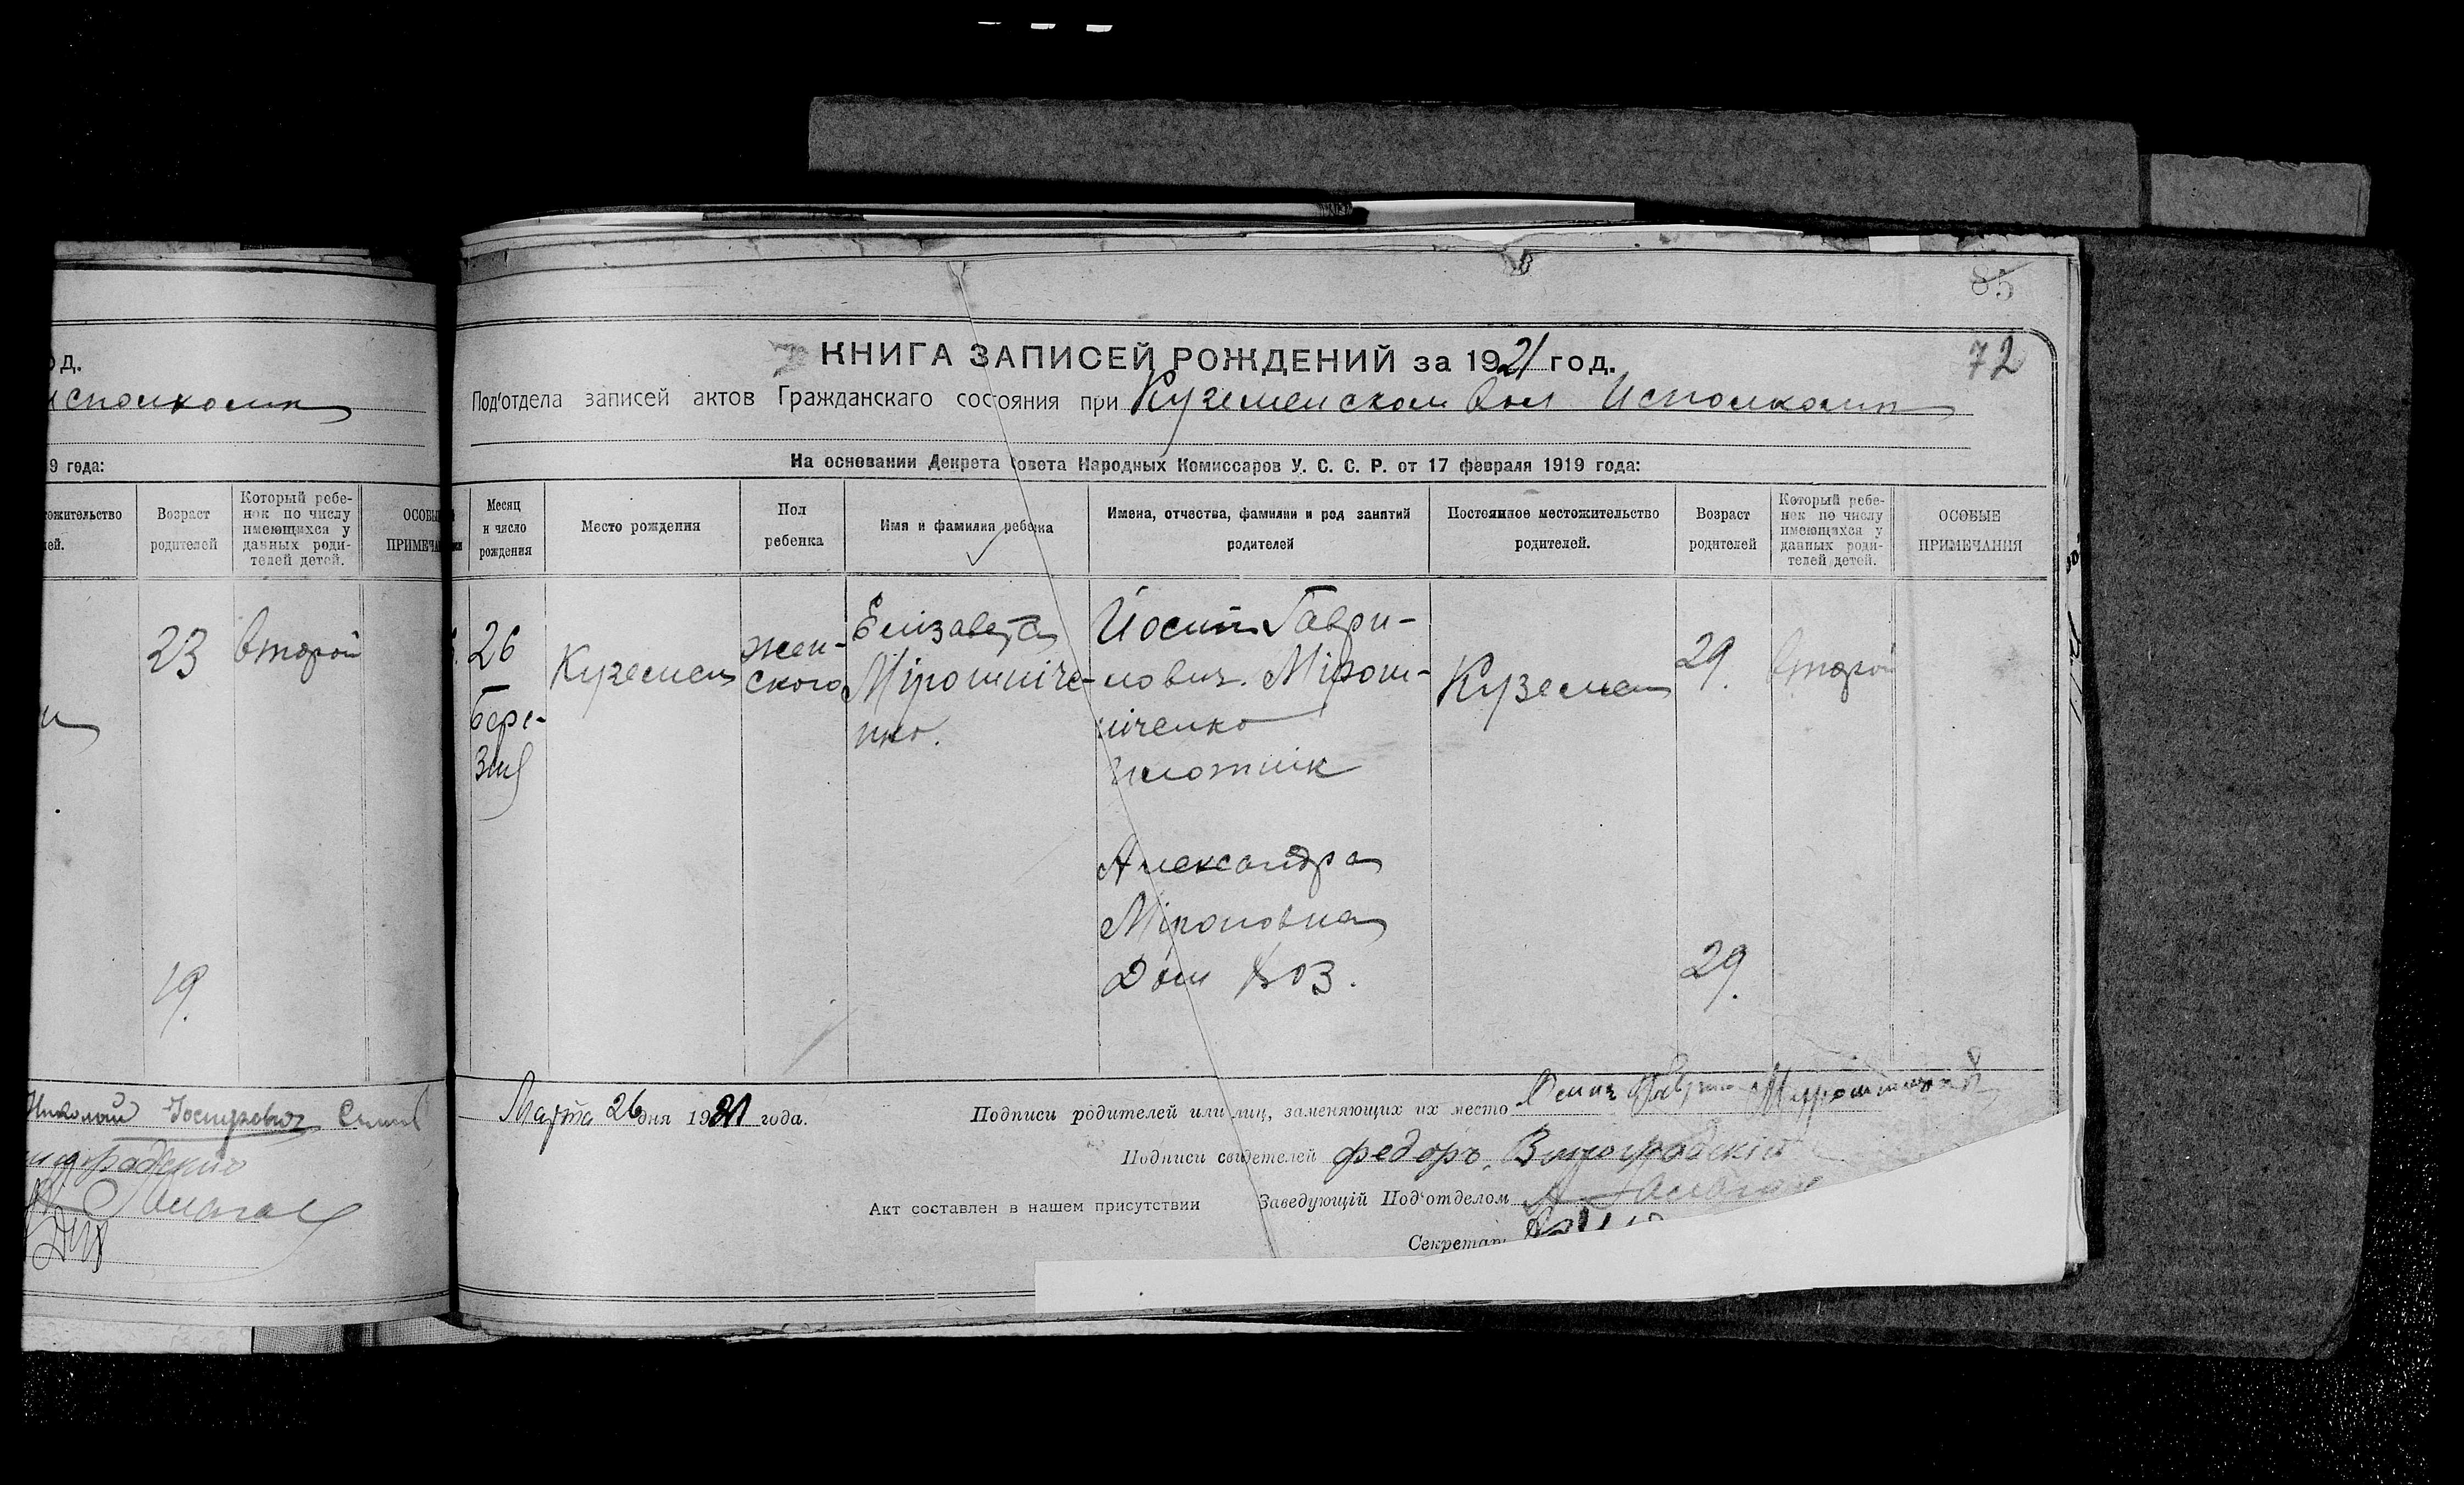 од.
исполкоми
9 года:
тожительство
лей.
Возраст
родителей
Который ребе-
нок по числу
имеющихся у
данных роди-
телей детей.
ОСОБЫ
ПРИМЕЧА
23
второй
19.
Николай
85
72
КНИГА ЗАПИСЕЙ РОЖДЕНИЙ за 1921 год.
Под'отдела записей актов Гражданскаго состояния при Куземенском Вол Исполкоми
На основании Декрета Совета Народных Комиссаров У. С. С. Р. от 17 февраля 1919 года:
Месяц
и число
рождения
Место рождения
Пол
ребенка
Имя и фамилия ребенка
Имена, отчества, фамилии и род занятий
родителей
Постоянное местожительство
родителей.
Возраст
родителей
Который ребе-
нок по числу
имеющихся у
данных роди-
телей детей.
ОСОБЫЕ
ПРИМЕЧАНИЯ
26
бере-
зня
Куземен
жен-
ского
Елизавета
Мірошніче-
нко.
Йосип Гаври-
лович. Мірош-
ніченко
плотнік
Александра
Міроновна
Дом хоз.
Куземен
29.
29.
второй
Марта 26 дня 1921 года.
Подписи родителей или лиц, заменяющих их место
Подписи свидетелей федоръ. Виноградскій
Акт составлен в нашем присутствии
Заведующій Под'отделом
Секретарь